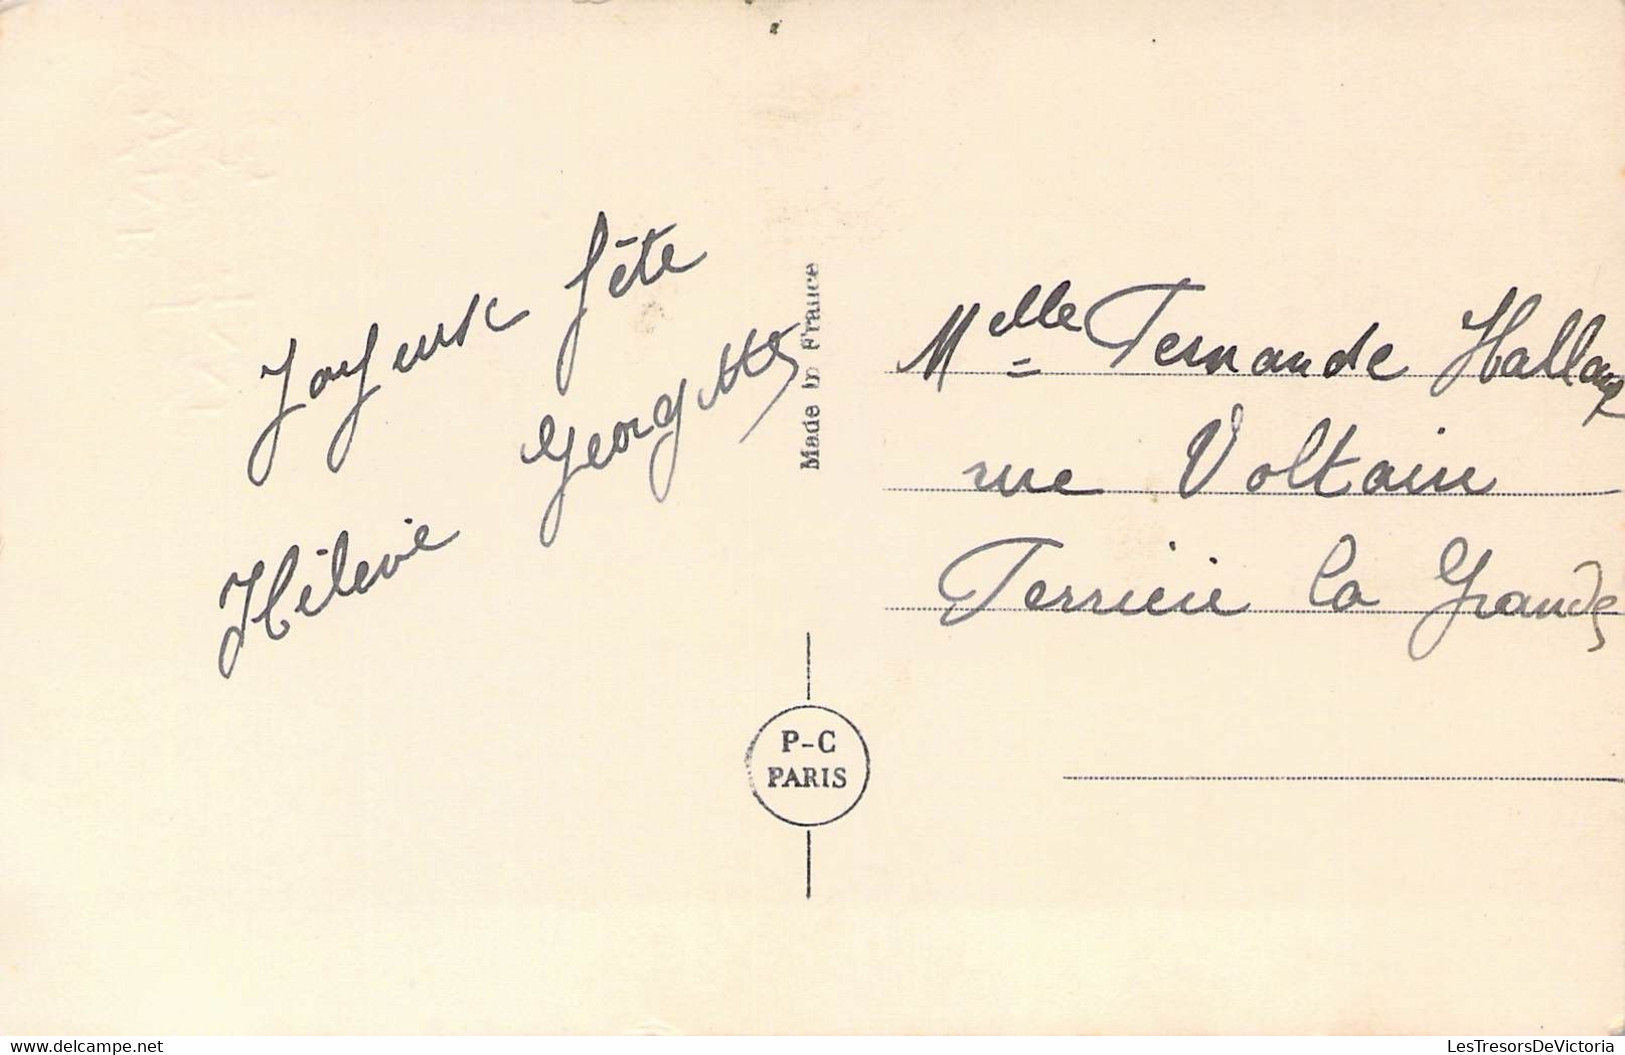 Joyeuse fête
Georgette
Made in France
Melle Fernande Hallaux
rue Voltaire
Ferrière la Grande
P-C
PARIS
delcampe.net
LesTresorsDeVictoria